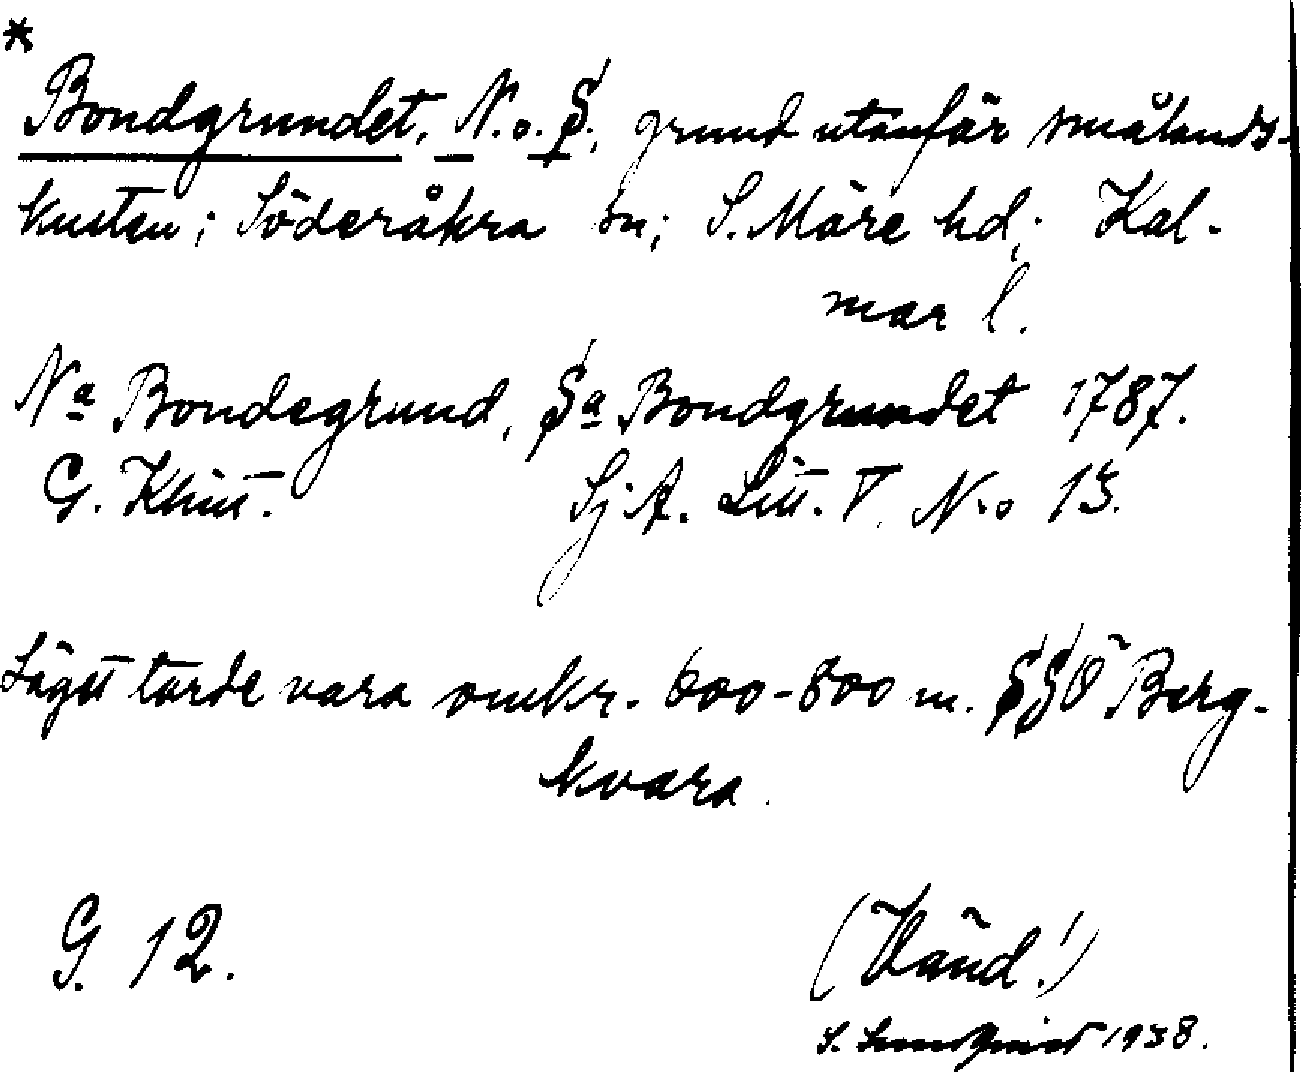 *
Bondgrundet, N. o. S., grund utanför smålands-
kusten; Söderåkra sn; S. Möre hd; Kal-
mar l.
Na Bondegrund, Sa Bondgrundet 1787.
G. Klint. Sj. A. Litt. V. No 13.
Läget torde vara omkr. 600-800 m. SSÖ Berg-
kvara.
G. 12.
(Vänd!)
S. Lundqvist 1938.